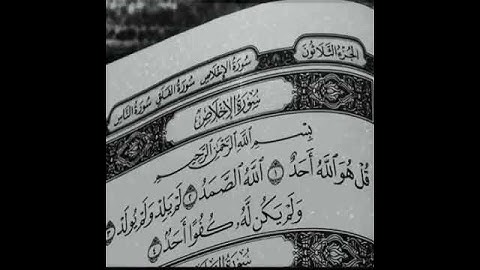 الجزء الثلاثون
سورة الإخلاص سورة الفلق سورة الناس
سُورَةُ الإِخْلَاصِ
بِسْمِ اللَّهِ الرَّحْمَٰنِ الرَّحِيمِ
قُلْ هُوَ اللَّهُ أَحَدٌ ۝١ اللَّهُ الصَّمَدُ ۝٢ لَمْ يَلِدْ وَلَمْ يُولَدْ ۝٣
وَلَمْ يَكُن لَّهُ كُفُوًا أَحَدٌ ۝٤